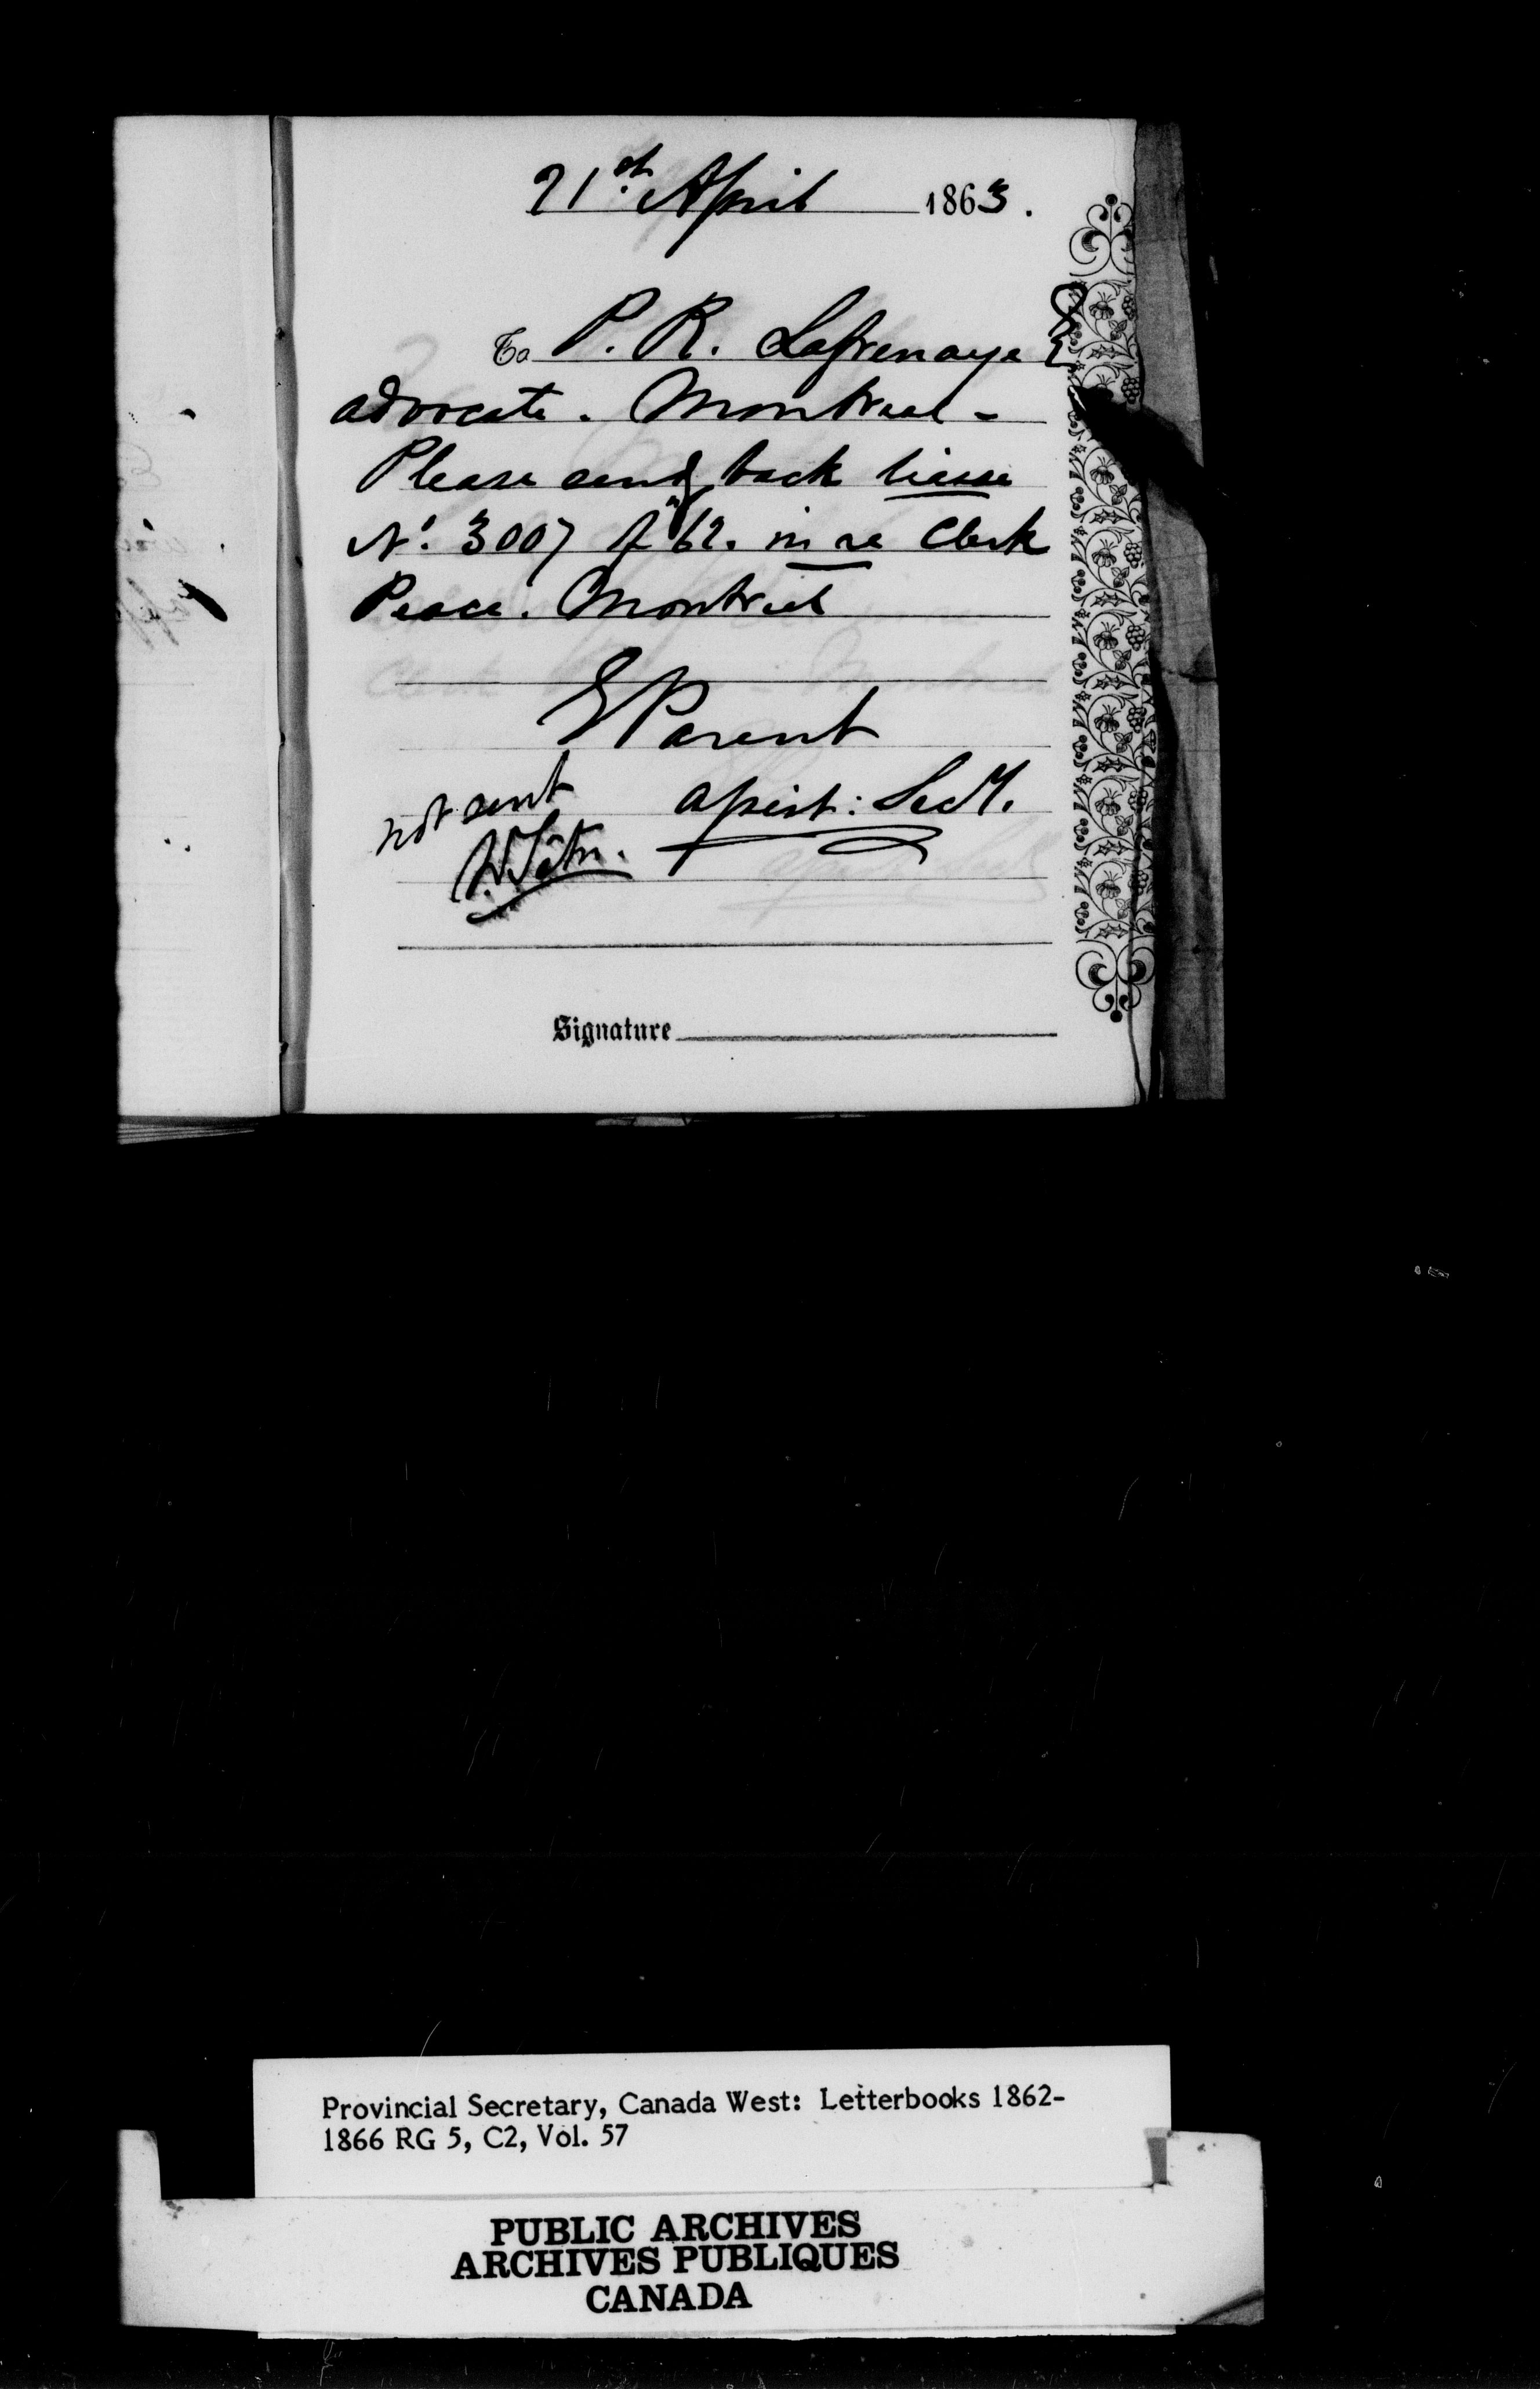 21st April 1863.
To P. R. Lafrenaye E
advocate. Montreal -
Please send back liasse
No. 3007 of 62. in re Clerk
Peace. Montreal
E Parent
not sent assist: Secy.
Signature
Provincial Secretary, Canada West: Letterbooks 1862-
1866 RG 5, C2, Vol. 57
PUBLIC ARCHIVES
ARCHIVES PUBLIQUES
CANADA